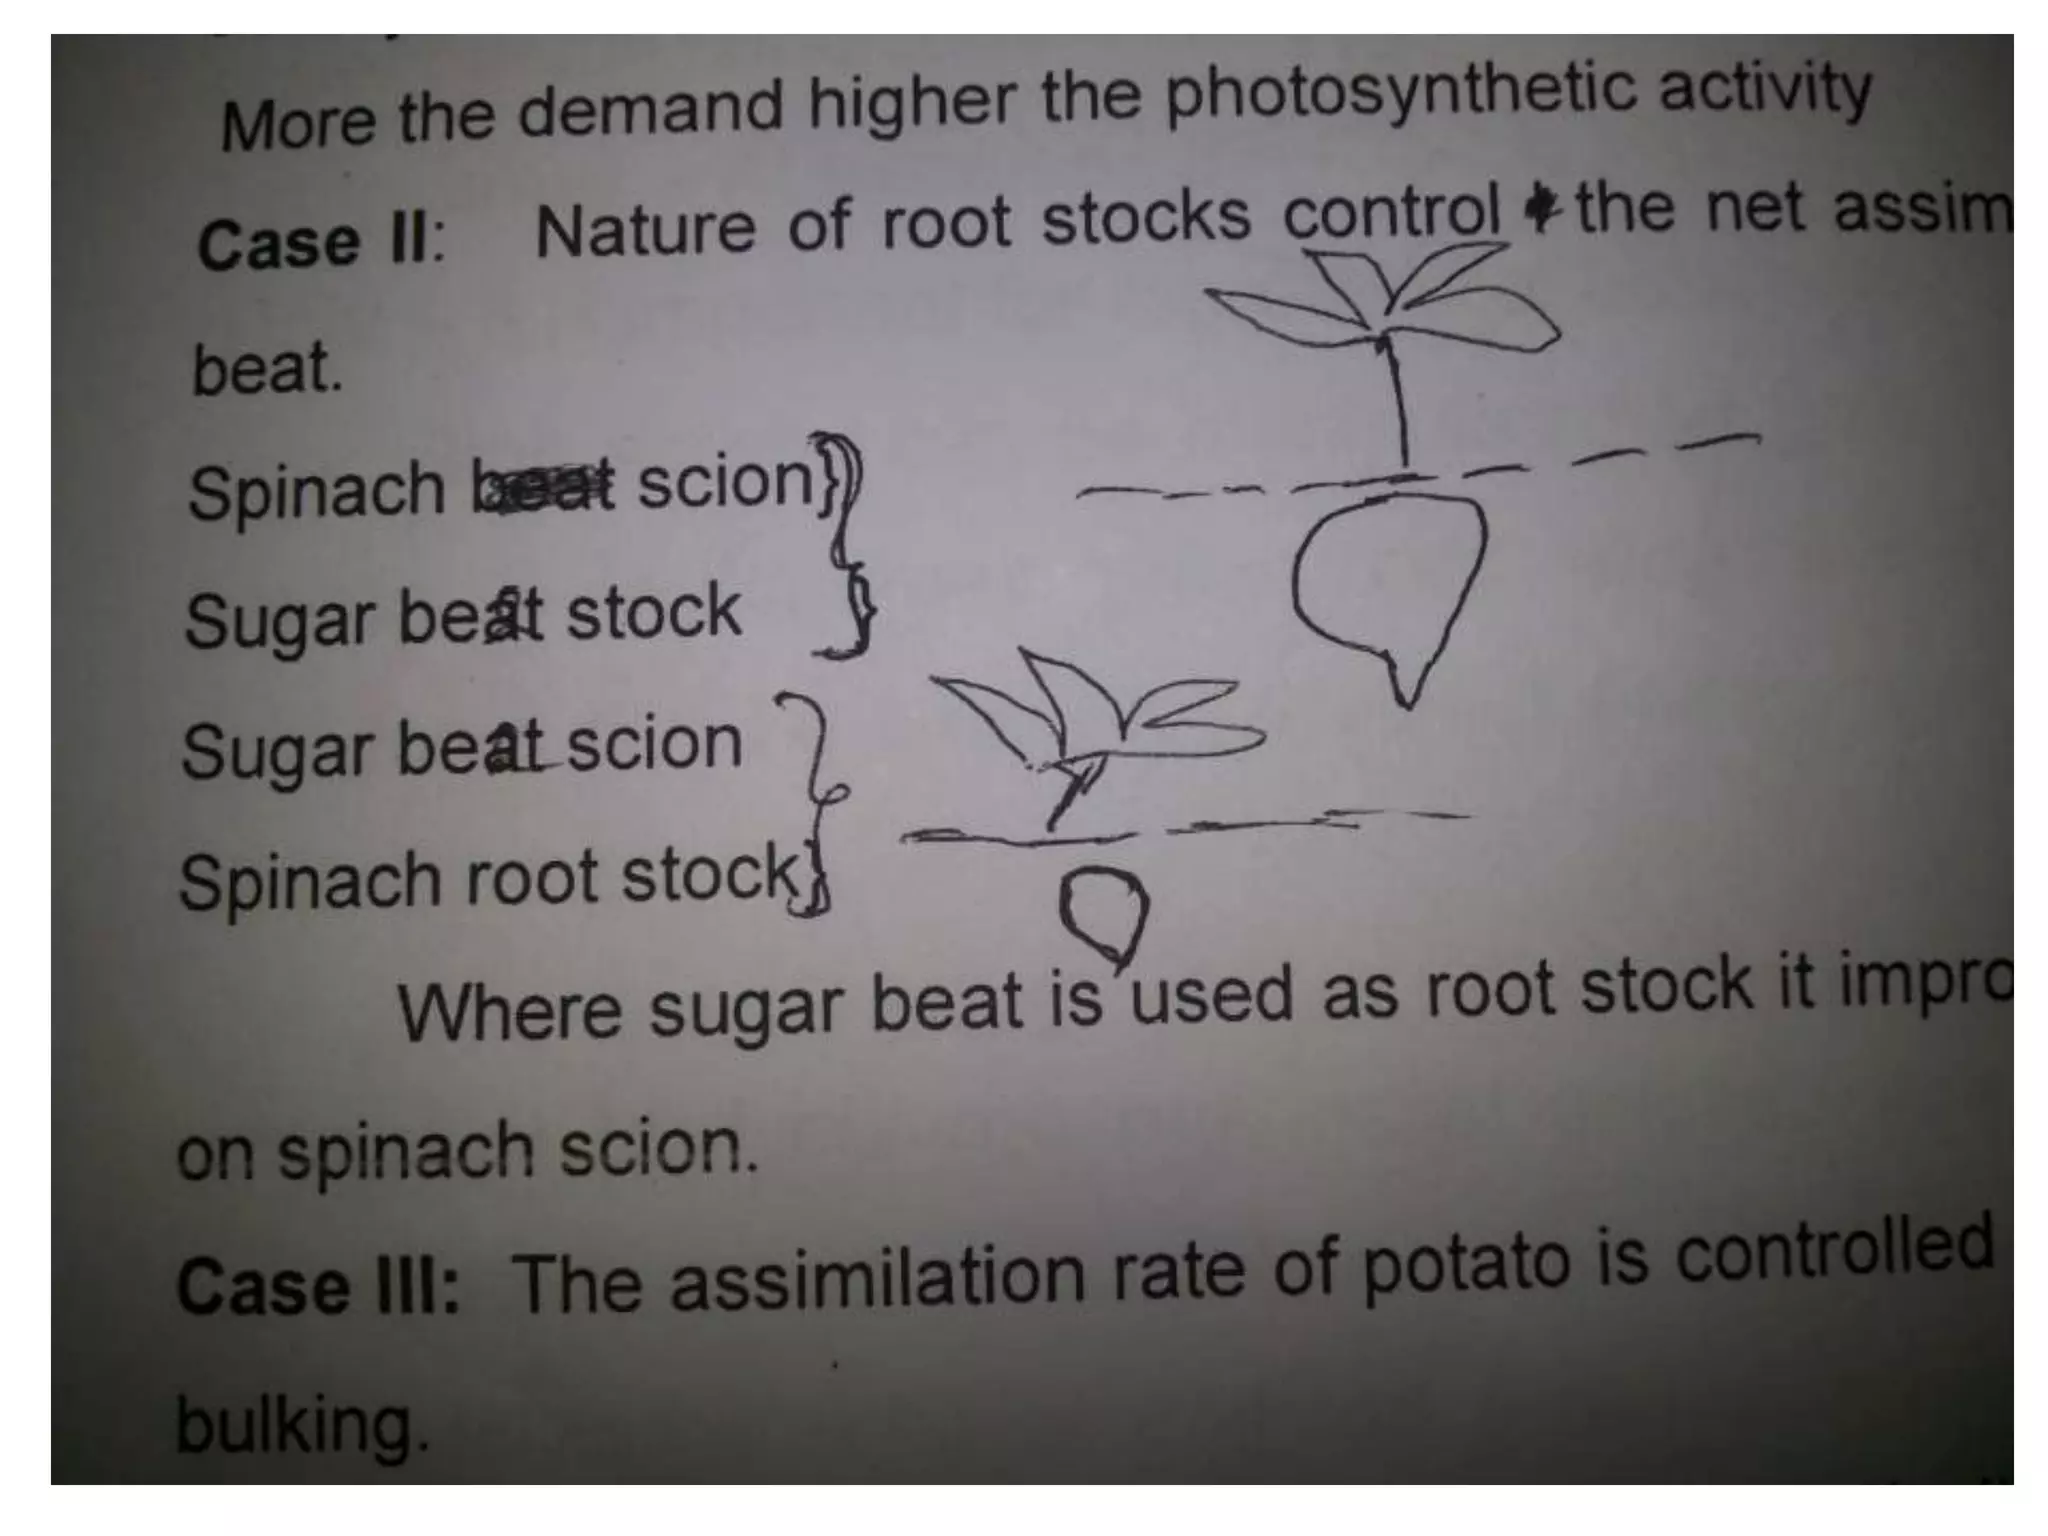 More the demand higher the photosynthetic activity
Case II: Nature of root stocks control the net assim
beat.
Spinach beat scion}
Sugar beat stock }
Sugar beat scion
Spinach root stock}
Where sugar beat is used as root stock it impro
on spinach scion.
Case III: The assimilation rate of potato is controlled
bulking.